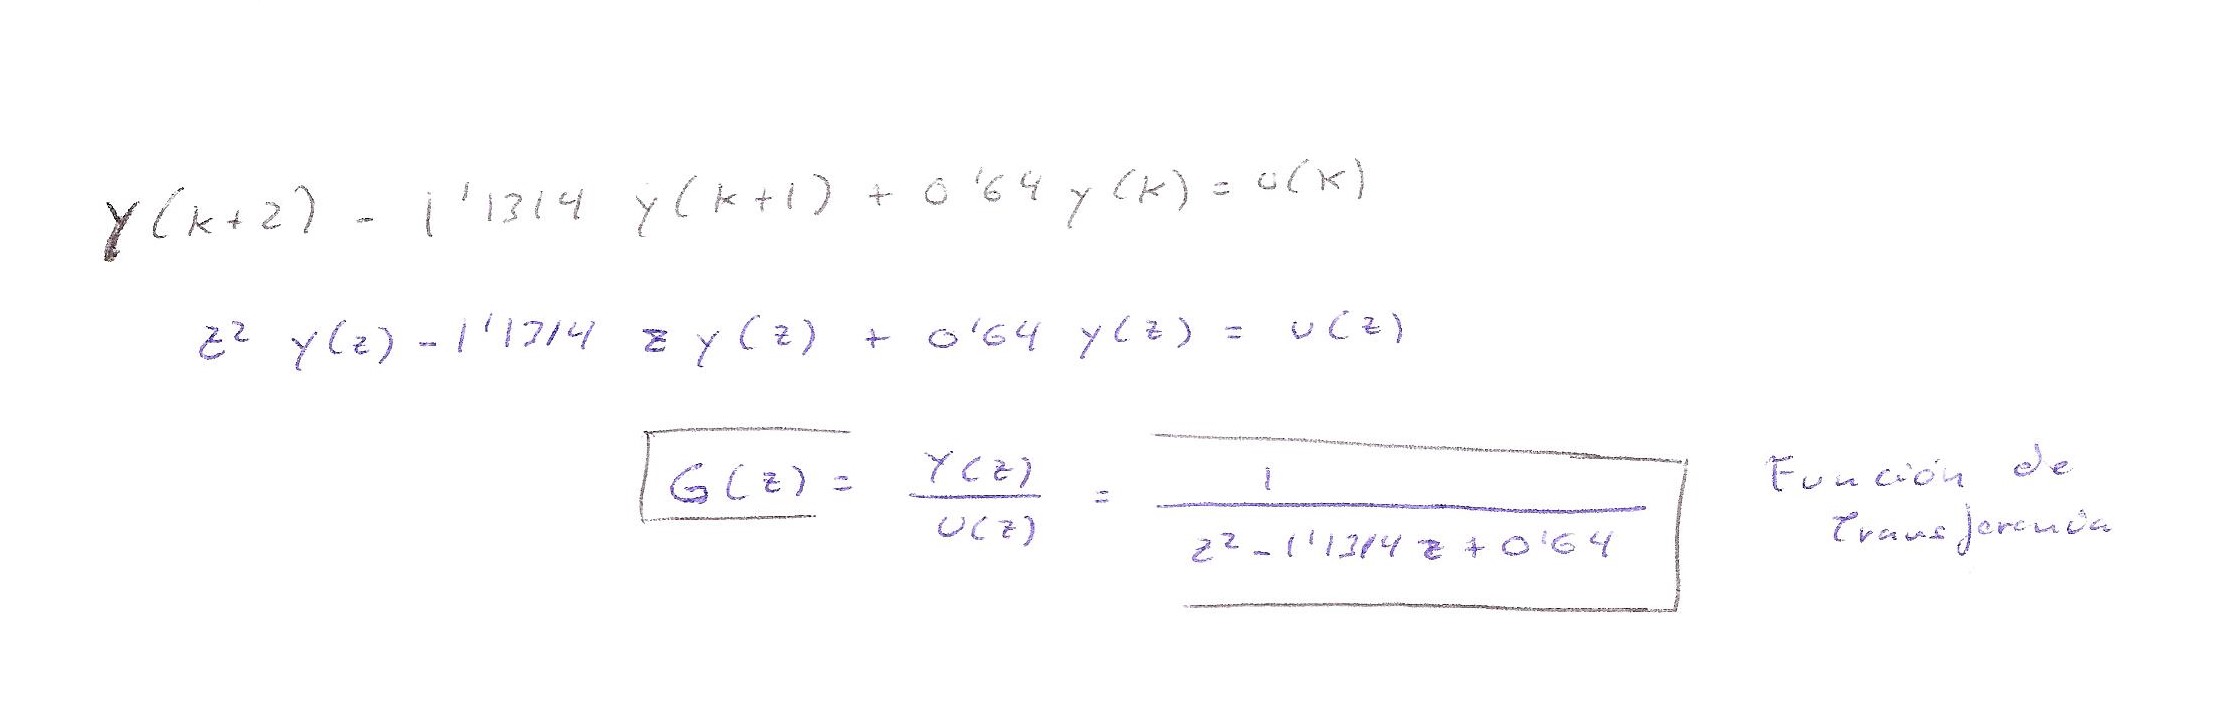 y(k+2) - 1'1314 y(k+1) + 0'64 y(k) = u(k)
z² y(z) - 1'1314 z y(z) + 0'64 y(z) = u(z)
G(z) = Y(z)/U(z) = 1/(z² - 1'1314 z + 0'64) Función de
Transferencia